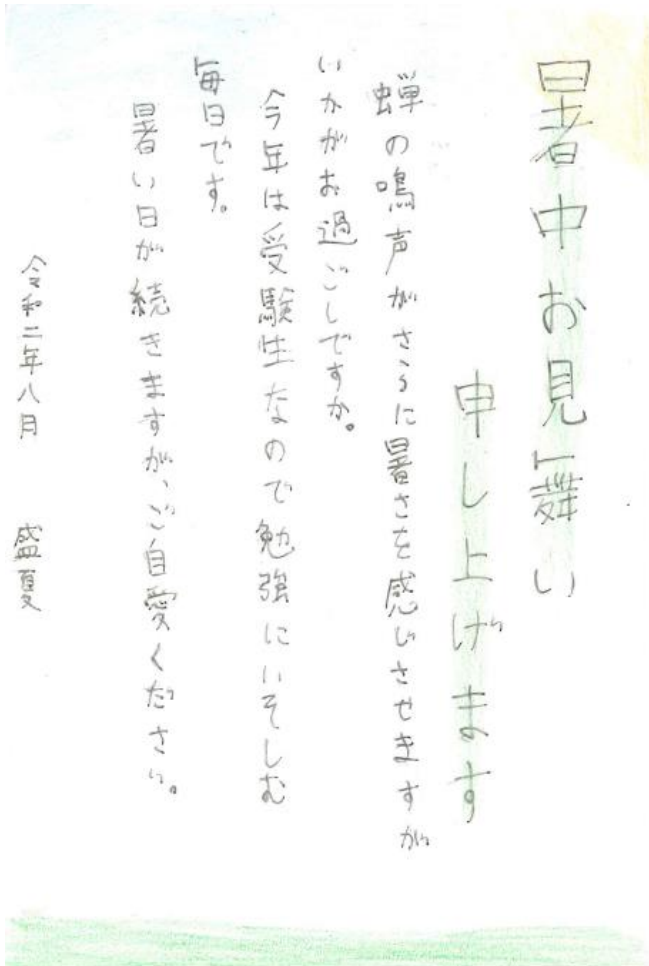 暑中お見舞い
申し上げます
蝉の鳴声がさらに暑さを感じさせますが
いかがお過ごしですか。
今年は受験生なので勉強にいそしむ
毎日です。
暑い日が続きますが、ご自愛ください。
令和二年八月 盛夏